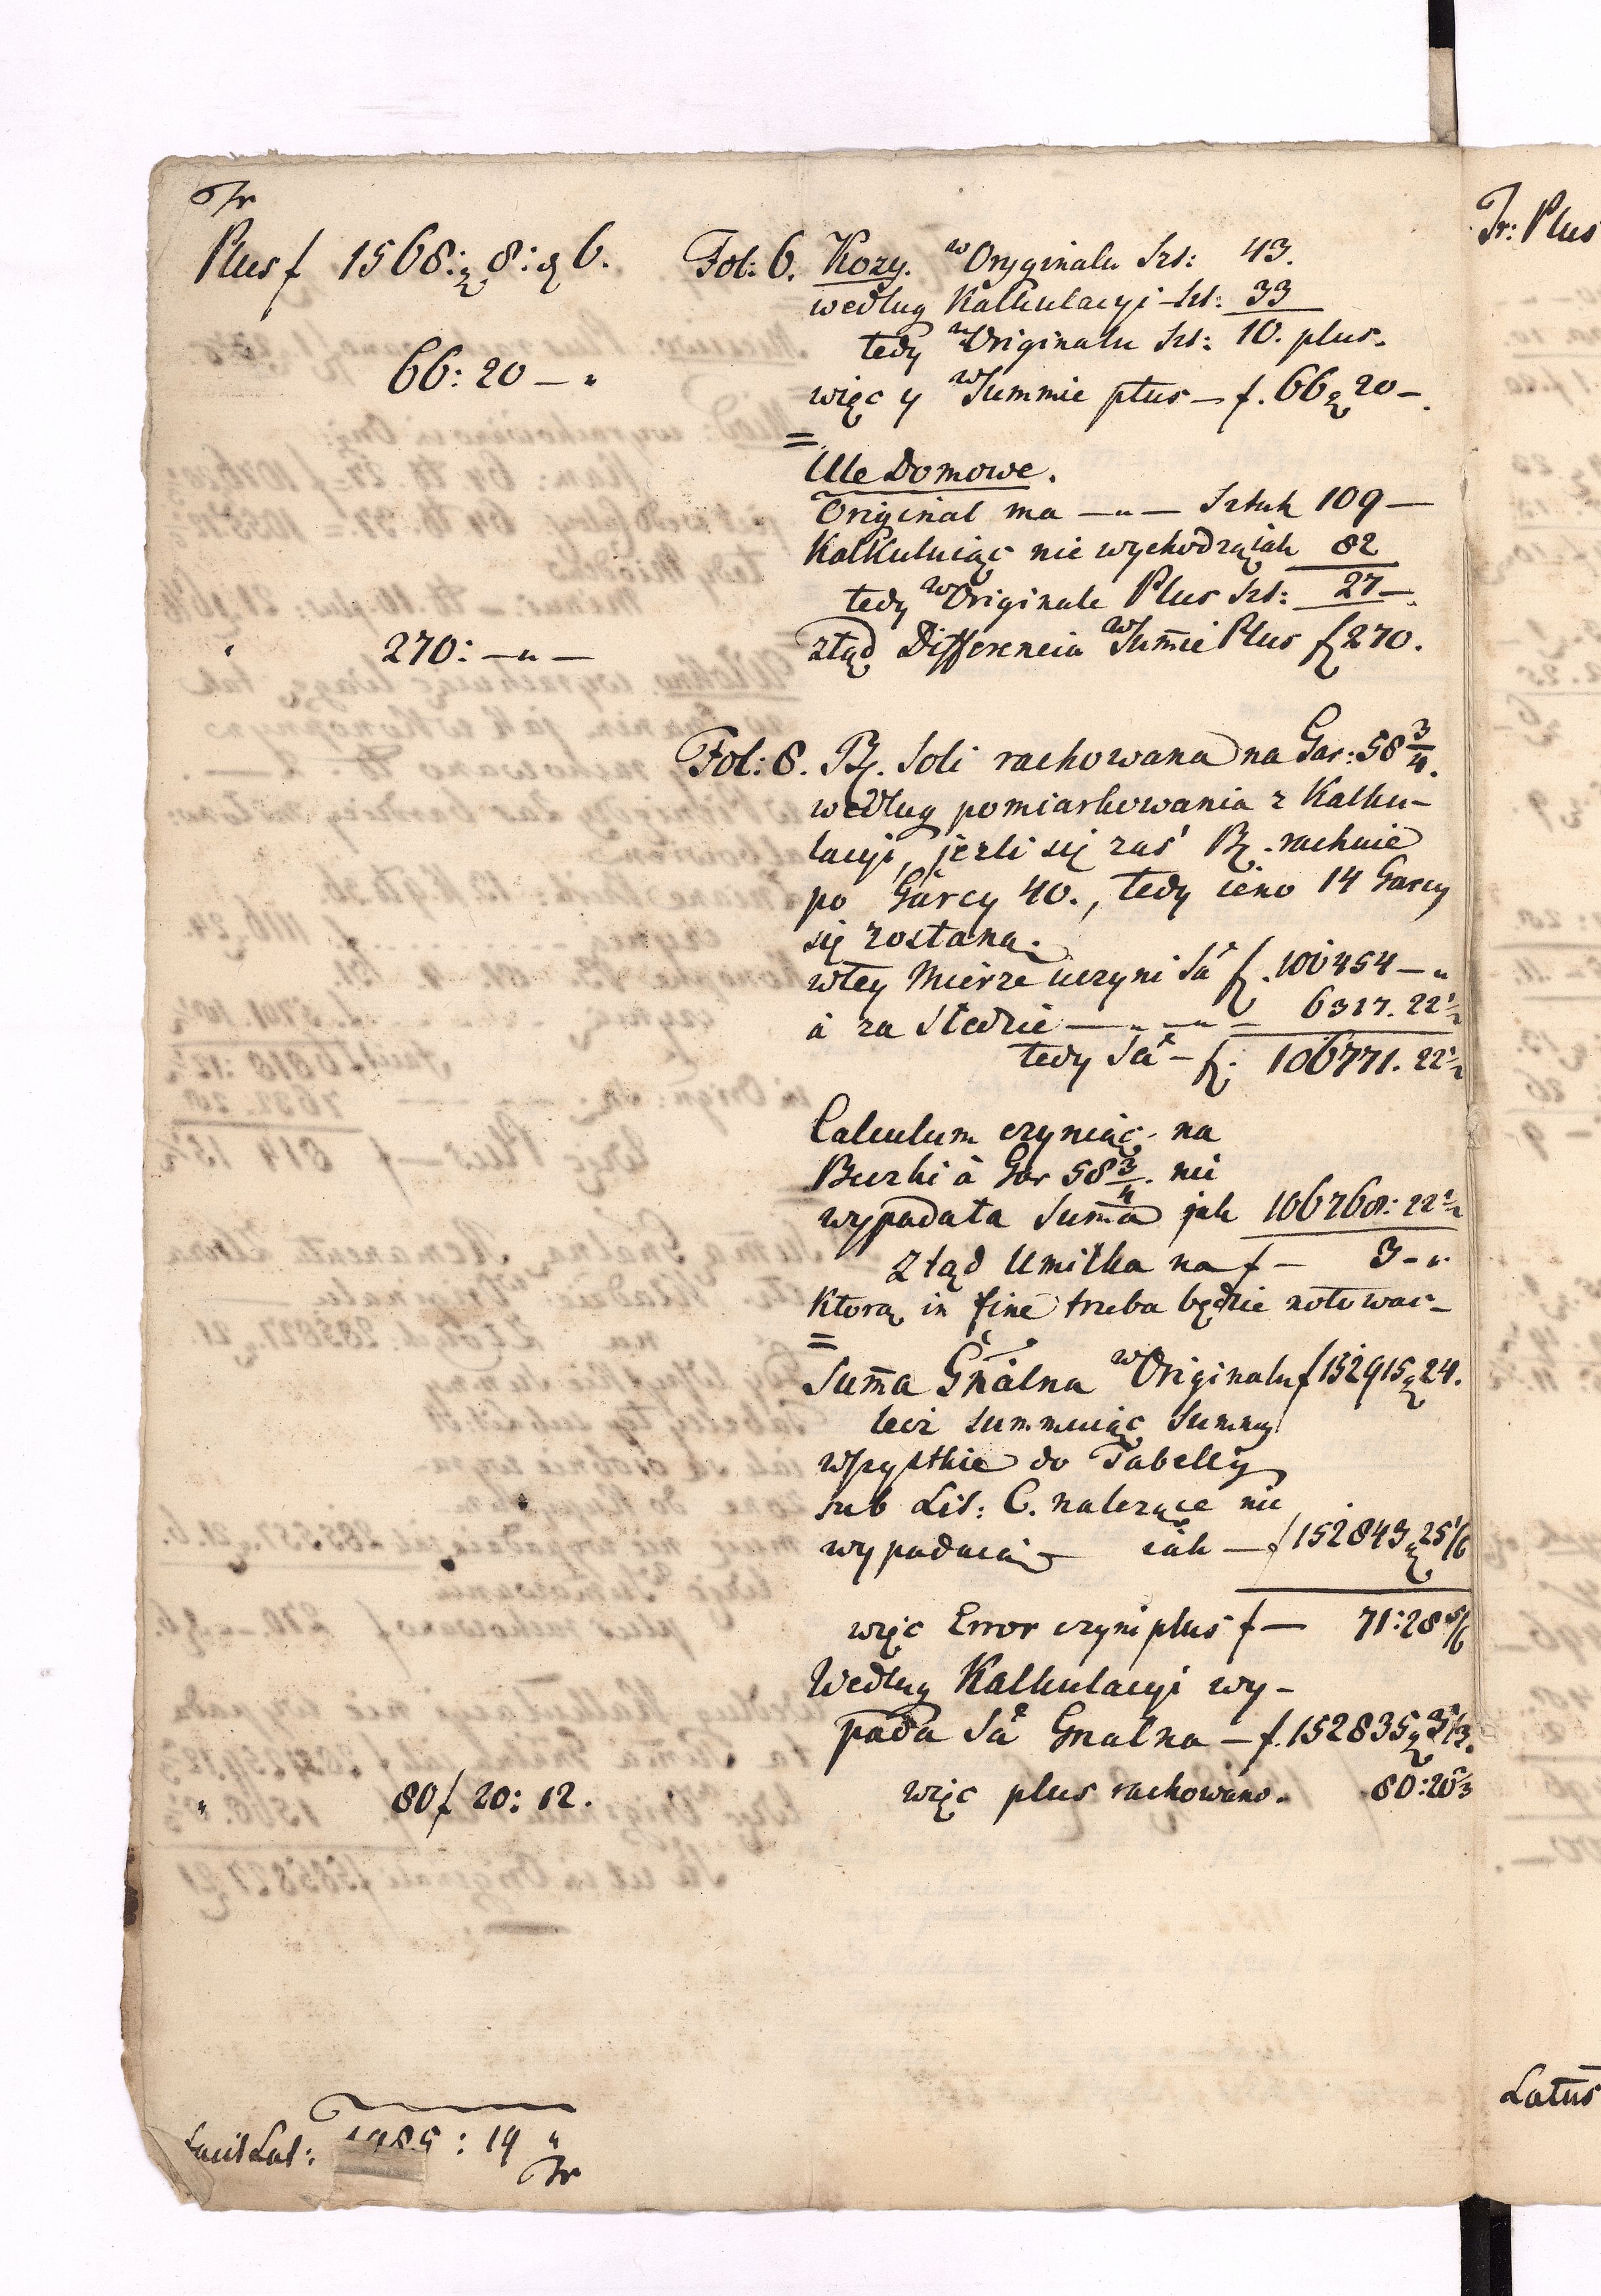 Tr
Plus f 1568: g 8: ₰ 6. Fol: 6. Kozy. w Oryginalu Szt: 43.
według Kalkulacyi Szt: 33
tedy w Originalu Szt: 10. plus.
66: 20 — „ więc y w Summie plus — f. 66 g 20 —
Ule Domowe.
Original ma — „ — Sztuk 109 —
Kalkuluiąc nie wychodzą iak 82
tedy w Originale Plus Szt: 27 —
„ 270: — „ — ztąd Differencia w Sum̄ie Plus f 270.
Fol: 8. Bz. Soli rachowana na Gar: 58 3/4.
według pomiarkowania z Kalku-
lacyi, jezli się zaś Bz. rachuie
po Garcy 40., tedy ieno 14 Garcy
się zostaną.
w tey Mierze uczyni Sã f. 100454 — „
à za Sledzie — „ — „ — 6317. 22 1/2
tedy Sã — f. 106771. 22 1/2
Calculum czyniąc na
Beczki à Gar 58 3/4. nie
wypadała Sum̄a jak 106768: 22 1/2
Ztąd Umiłka na f — 3 — „
Ktorą in fine trzeba będzie notowac —
Sum̄a Gnalna w Originalu f 152915 g 24.
lecz summuiąc Summy
wszystkie do Tabelly
sub Lit: C. należące nie
wypadaią — iak — f 152843 g 25 1/6
więc Error czyni plus f — 71: 28 5/6
Według Kalkulacyi wy-
pada Sã Gnalna — f. 152835 g 3 1/3.
„ 80 f 20: 12. więc plus rachowano. 80: 20 2/3
Facit Lat: 1985: 14 „
Tr
Tr: Plus
Latus